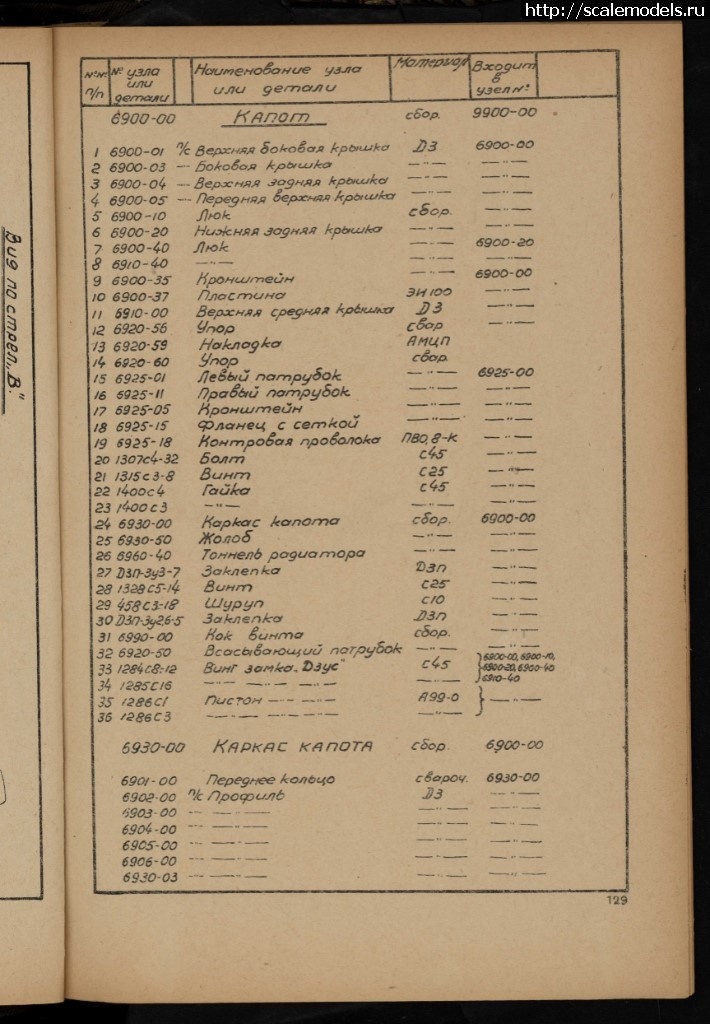 http://scalemodels.ru
Вид по стрел. „В."
№№ п/п № узла или детали Наименование узла или детали Материал Входит в узел №
6900-00 КАПОТ сбор. 9900-00
1 6900-01 п/с Верхняя боковая крышка Д3 6900-00
2 6900-03 — Боковая крышка —"— —"—
3 6900-04 — Верхняя задняя крышка —"— —"—
4 6900-05 — Передняя верхняя крышка —"— —"—
5 6900-10 Люк сбор. —"—
6 6900-20 Нижняя задняя крышка —"— —"—
7 6900-40 Люк —"— 6900-20
8 6910-40 —"— —"— —"—
9 6900-35 Кронштейн —"— 6900-00
10 6900-37 Пластина ЭИ100 —"—
11 6910-00 Верхняя средняя крышка Д3 —"—
12 6920-56 Упор свар —"—
13 6920-59 Накладка АМЦП
14 6920-60 Упор свар.
15 6925-01 Левый патрубок —"— 6925-00
16 6925-11 Правый патрубок —"— —"—
17 6925-05 Кронштейн —"— —"—
18 6925-15 Фланец с сеткой —"— —"—
19 6925-18 Контровая проволока ПВ0,8-К —"—
20 1307с4-32 Болт с45 —"—
21 1315с3-8 Винт с25 —"—
22 1400с4 Гайка с45 —"—
23 1400с3 —"—
24 6930-00 Каркас капота сбор. 6900-00
25 6930-50 Жолоб —"— —"—
26 6960-40 Тоннель радиатора —"— —"—
27 Д3П-3у3-7 Заклепка Д3п —"—
28 1328с5-14 Винт с25 —"—
29 458с3-18 Шуруп с10 —"—
30 Д3П-3у26-5 Заклепка Д3п —"—
31 6990-00 Кок винта сбор. —"—
32 6920-50 Всасывающий патрубок —"— —"—
33 1284с8-12 Винт замка „Дзус" с45 6900-00, 6900-10, 6900-20, 6900-40 6910-40
34 1285с16 —"— —"—
35 1286с1 Пистон —"— А99-0 —"—
36 1286с3 —"— —"—
6930-00 КАРКАС КАПОТА сбор. 6900-00
6901-00 Переднее кольцо свароч. 6930-00
6902-00 п/с Профиль Д3 —"—
6903-00 —"— —"— —"—
6904-00 —"— —"— —"—
6905-00 —"— —"— —"—
6906-00 —"— —"— —"—
6930-03 —"— —"— —"—
129